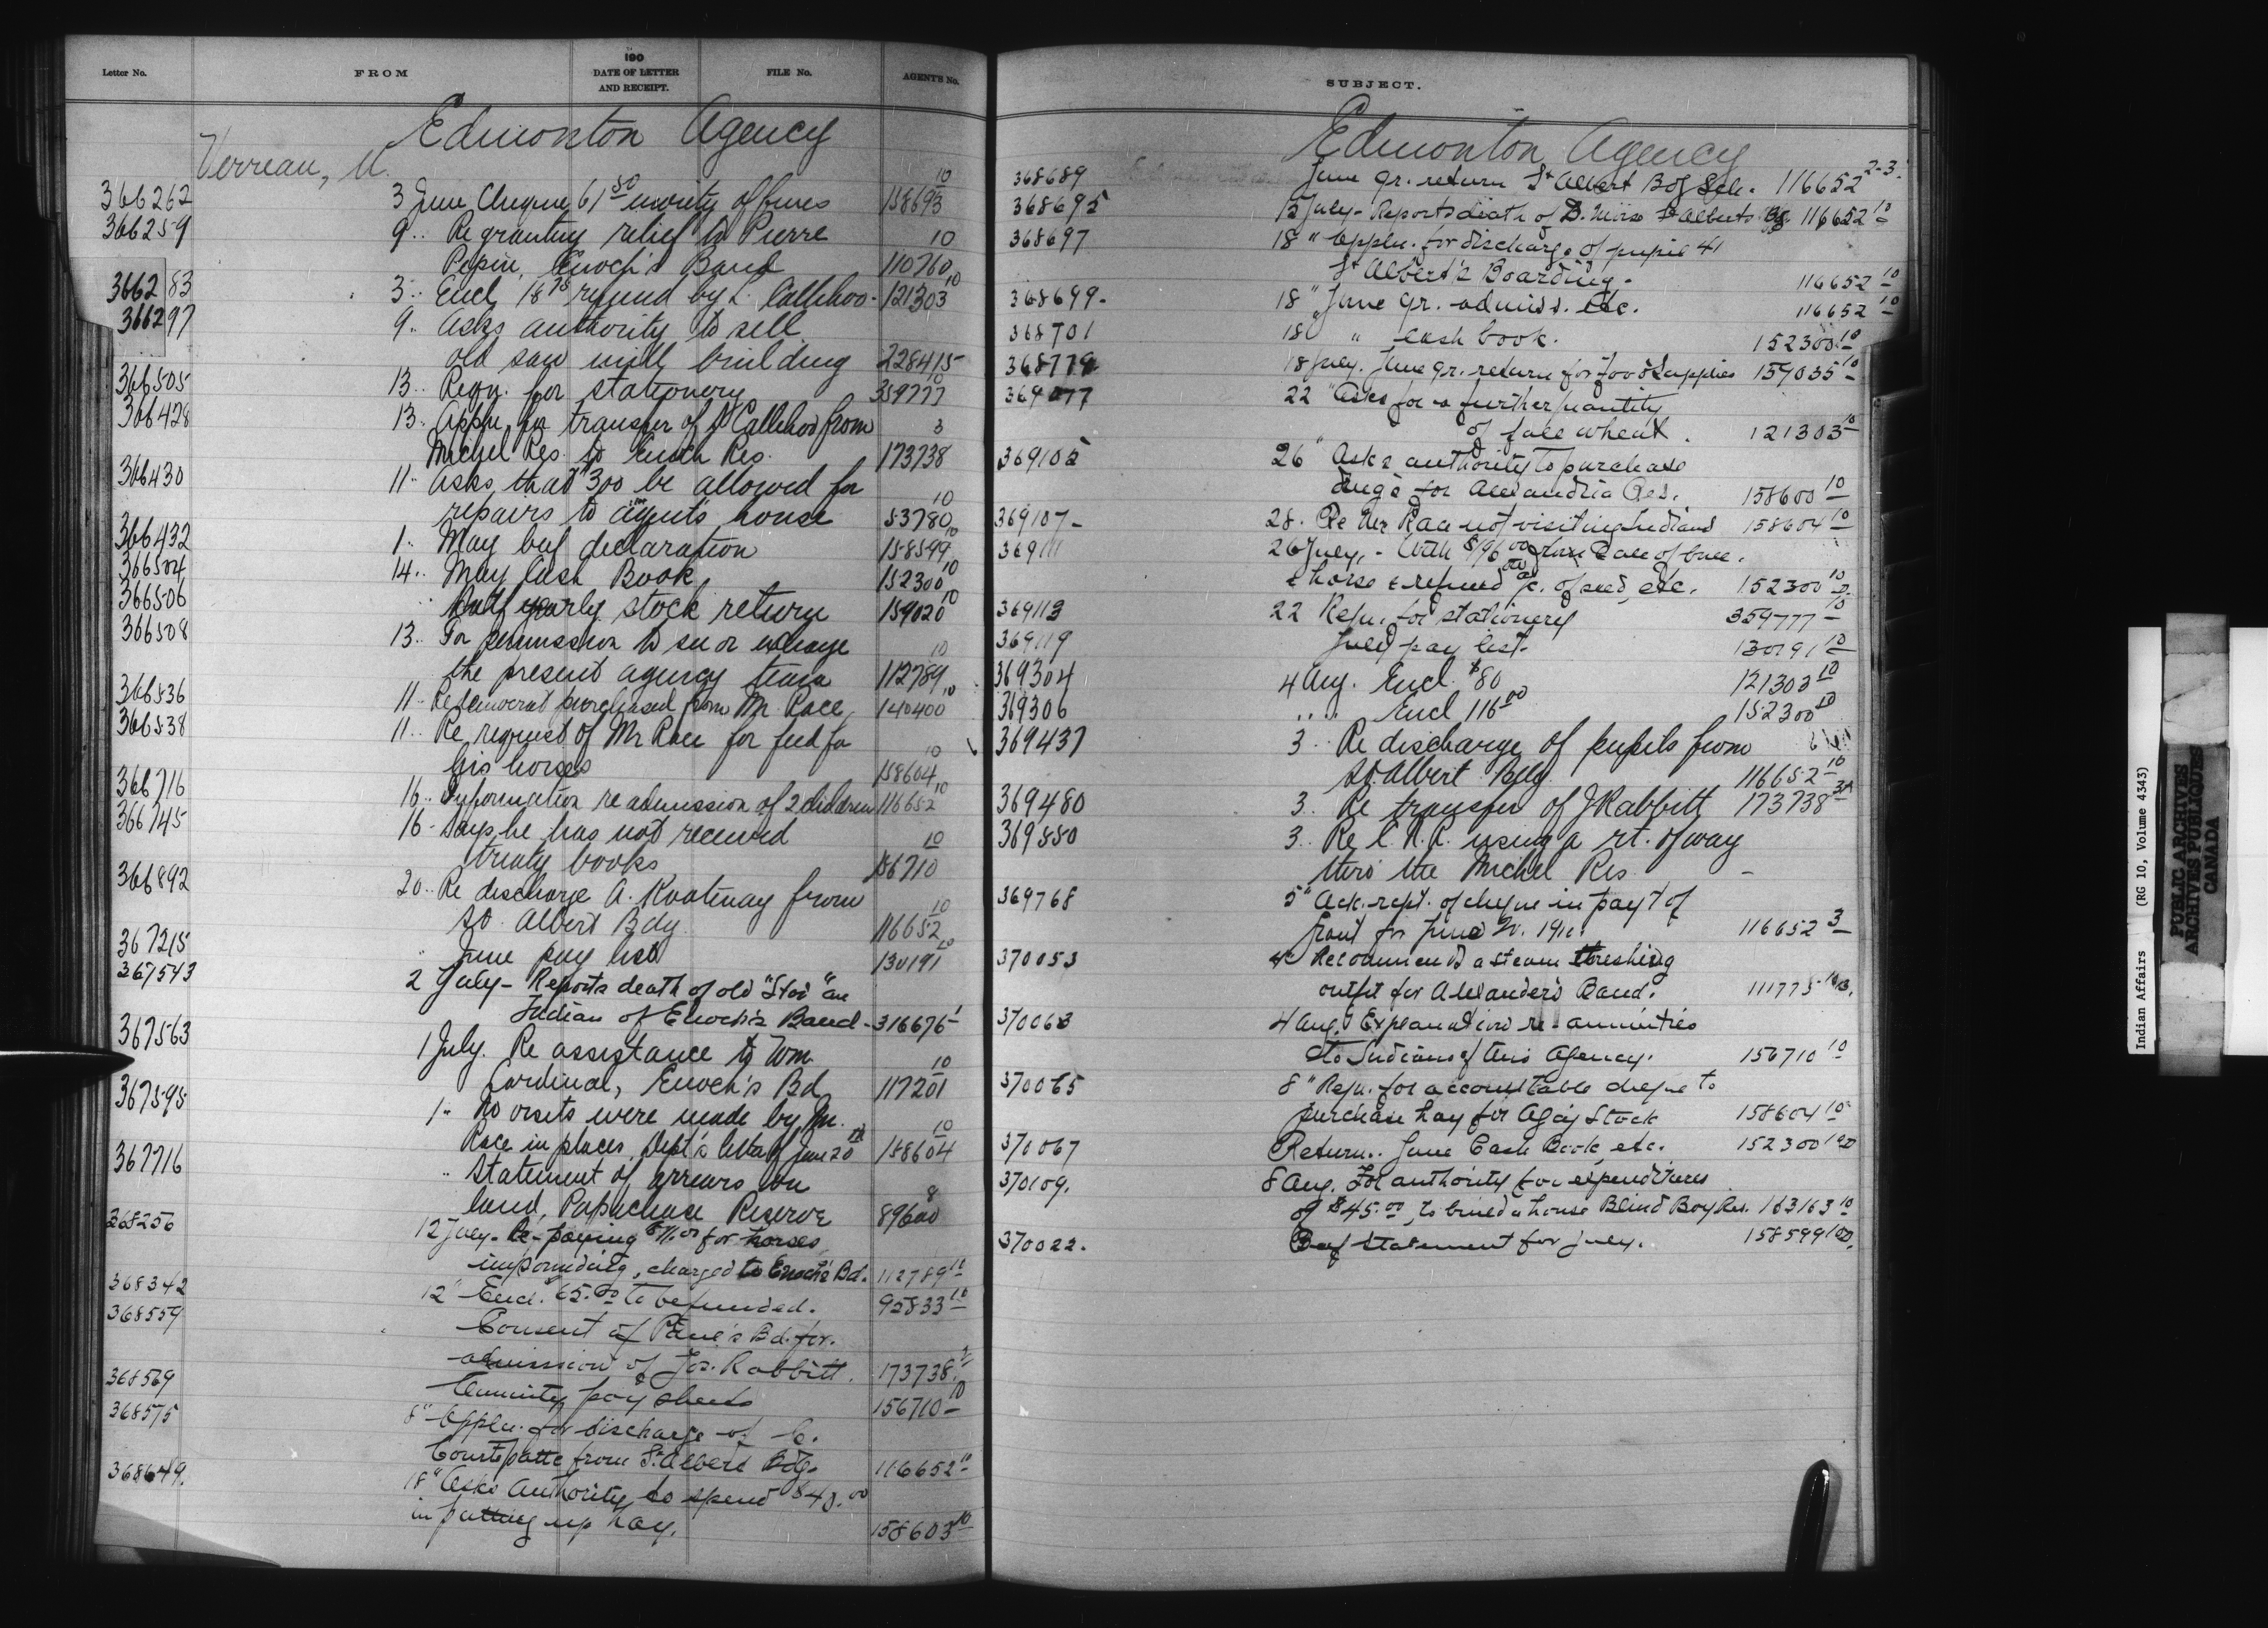 Letter No.
FROM
190
DATE OF LETTER
AND RECEIPT.
FILE No.
AGENT'S No.
Edmonton Agency
Verreau, U.
366262 3 June Cheque 61 50 moiety of fines 158693 10
366259 9 " Re granting relief to Pierre 10
Pepin, Enoch's Band 110760
366283 3 " Encl. 18 75 refund by L. Callihoo - 121303 10
366297 9 " Asks authority to sell
old saw mill building 228415
366505 13 " Reqn. for stationery 359777 10
366428 13 " Appln. for transfer of Callihoo from 3
Michel Res. to Enoch Res. 173738
366430 11 " Asks that $300 be allowed for 10
repairs to agent's house 53780
366432 1 " May beef declaration 158599 10
366504 14 " May Cash Book 152300 10
366506 " Half yearly stock return 159020 10
366508 13 " For permission to sell or exchange 10
the present agency team 112789
366536 11 " Re democrat purchased from Mr. Race 140400 10
366538 11 " Re request of Mr Race for feed for 10
his horses 158604
366716 16 " Information re admission of 2 children 116652 10
366745 16 - Says he has not received 10
treaty books 156710
366892 20 " Re discharge A. Kootenay from 10
St. Albert Bdg. 116652
367215 " June pay list 130191 10
367543 2 July - Reports death of old "Star" an
Indian of Enoch's Band - 316676
367563 1 July. Re assistance to Wm. 10
Cardinal, Enoch's Bd 117201
367595 1 " No visits were made by Mr. 10
Race in places, Dept's letter of June 20 th 158604
367716 " Statement of arrears on 8
land, Papachase Reserve 89600
368256 12 July - Re - paying $11.00 for horses
impounding, charged to Enoch's Bd. 112789 10
368342 12 " Encl. 65.00 to be funded. 92833 10
368559 Consent of Paul's Bd. for.
admission of Jos. Rabbitt. 173738
368569 Annuity pay sheets 156710 10
368575 8 " Appln. for discharge of C.
Courtepatte from St. Albert Bdg. 116652 10
368649. 18 " Asks authority to spend $48.00
in putting up hay. 158603 10
SUBJECT.
Edmonton Agency
368689 June qr. return St Albert Bdg Sch. 116652 2-3.
368695 12 July - Reports death of D. St Alberts Bg 116652 10
368697 18 " Appln. for discharge of pupil 41
St Albert's Boarding. 116652 10
368699 - 18 " June qr. admiss. etc. 116652 10
368701 18 " cash book. 152300 10
368779 18 July. June qr. return for Food Supplies 159035 10
369077 22 " Asks for a further quantity
of fall wheat. 121303 10
369105 26 " Asks authority to purchase
for Alexandria Res. 158600 10
369107 - 28. Re Mr. Race not visiting Indians 158604 10
369111 26 July, - With $196.00 from sale of
& horse & refund a/c. of seed, etc. 152300 10
369113 22 Reqn. for stationery 359777 10
369119 July pay list - 130191 10
369304 4 Aug. Encl. $80 121303 10
369306 " " Encl 116.00 152300 10
369437 3 " Re discharge of pupils from
St. Albert Bdg. 116652 10
369480 3 " Re transfer of J Rabbitt 173738 3
369550 3 " Re C.N.R. using a rt. of way
thro' the Michel Res. -
369768 5 " Ack. rept. of cheque in pay't of
grant for June Qr. 1910. 116652 3
370053 4 " Recommends a steam threshing
outfit for Alexander's Band. 111775
370063 4 Aug. Explanation re annuities
to Indians of this Agency. 156710 10
370065 8 " Reqn. for accountable cheque to
purchase hay for Ag'cy Stock 158604 10
370067 Return.. June Cash Book, etc. 152300 10
370109. 8 Aug. For authority for expenditures
of $45.00, to build a house Blind Boy Res. 163163 10
370022. Beef Statement for July. 158599 10
Indian Affairs (RG 10, Volume 4343)
PUBLIC ARCHIVES
ARCHIVES PUBLIQUES
CANADA